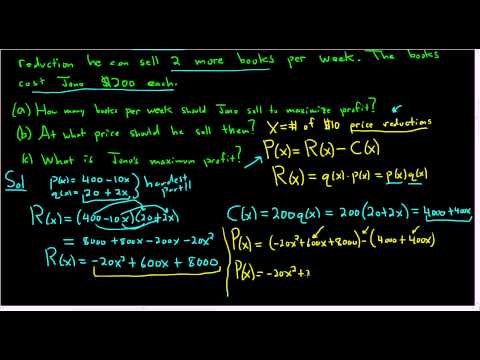 reduction he can sell 2 more books per week. The books
cost Jono $200 each.
(a) How many books per week should Jono sell to maximize profit?
(b) At what price should he sell them?
(c) What is Jono's maximum profit?
X = # of $10 price reductions
P(x) = R(x) - C(x)
R(x) = q(x) · p(x) = p(x) q(x)
Sol
p(x) = 400 - 10x
q(x) = 20 + 2x
} hardest part!!
R(x) = (400 - 10x)(20 + 2x)
= 8000 + 800x - 200x - 20x²
R(x) = -20x² + 600x + 8000
C(x) = 200q(x) = 200(20+2x) = 4000 + 400x
P(x) = (-20x² + 600x + 8000) - (4000 + 400x)
P(x) = -20x² +